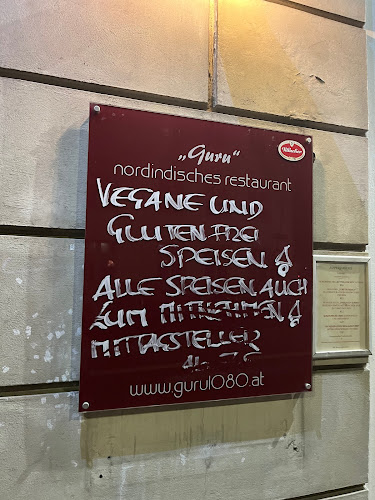 „Guru"
nordindisches restaurant
VEGANE UND
GLUTENFREI
SPEISEN!
ALLE SPEISEN AUCH
ZUM MITNEHMEN!
MITTAGSTELLER
www.guru1080.at